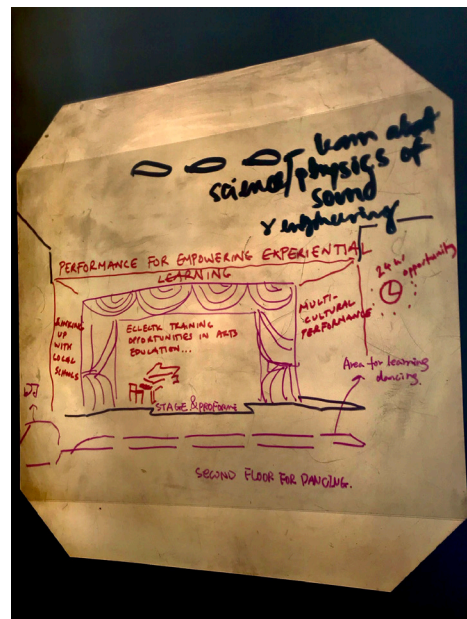 learn about
science/physics of
sound
& engineering
PERFORMANCE FOR EMPOWERING EXPERIENTIAL
LEARNING
24 hr opportunity
LINKING
UP
WITH
LOCAL
SCHOOLS
ECLECTIC TRAINING
OPPORTUNITIES IN ARTS
EDUCATION...
MULTI-
CULTURAL
PERFORMANCE
Area for learning
dancing.
STAGE &
SECOND FLOOR FOR DANCING.